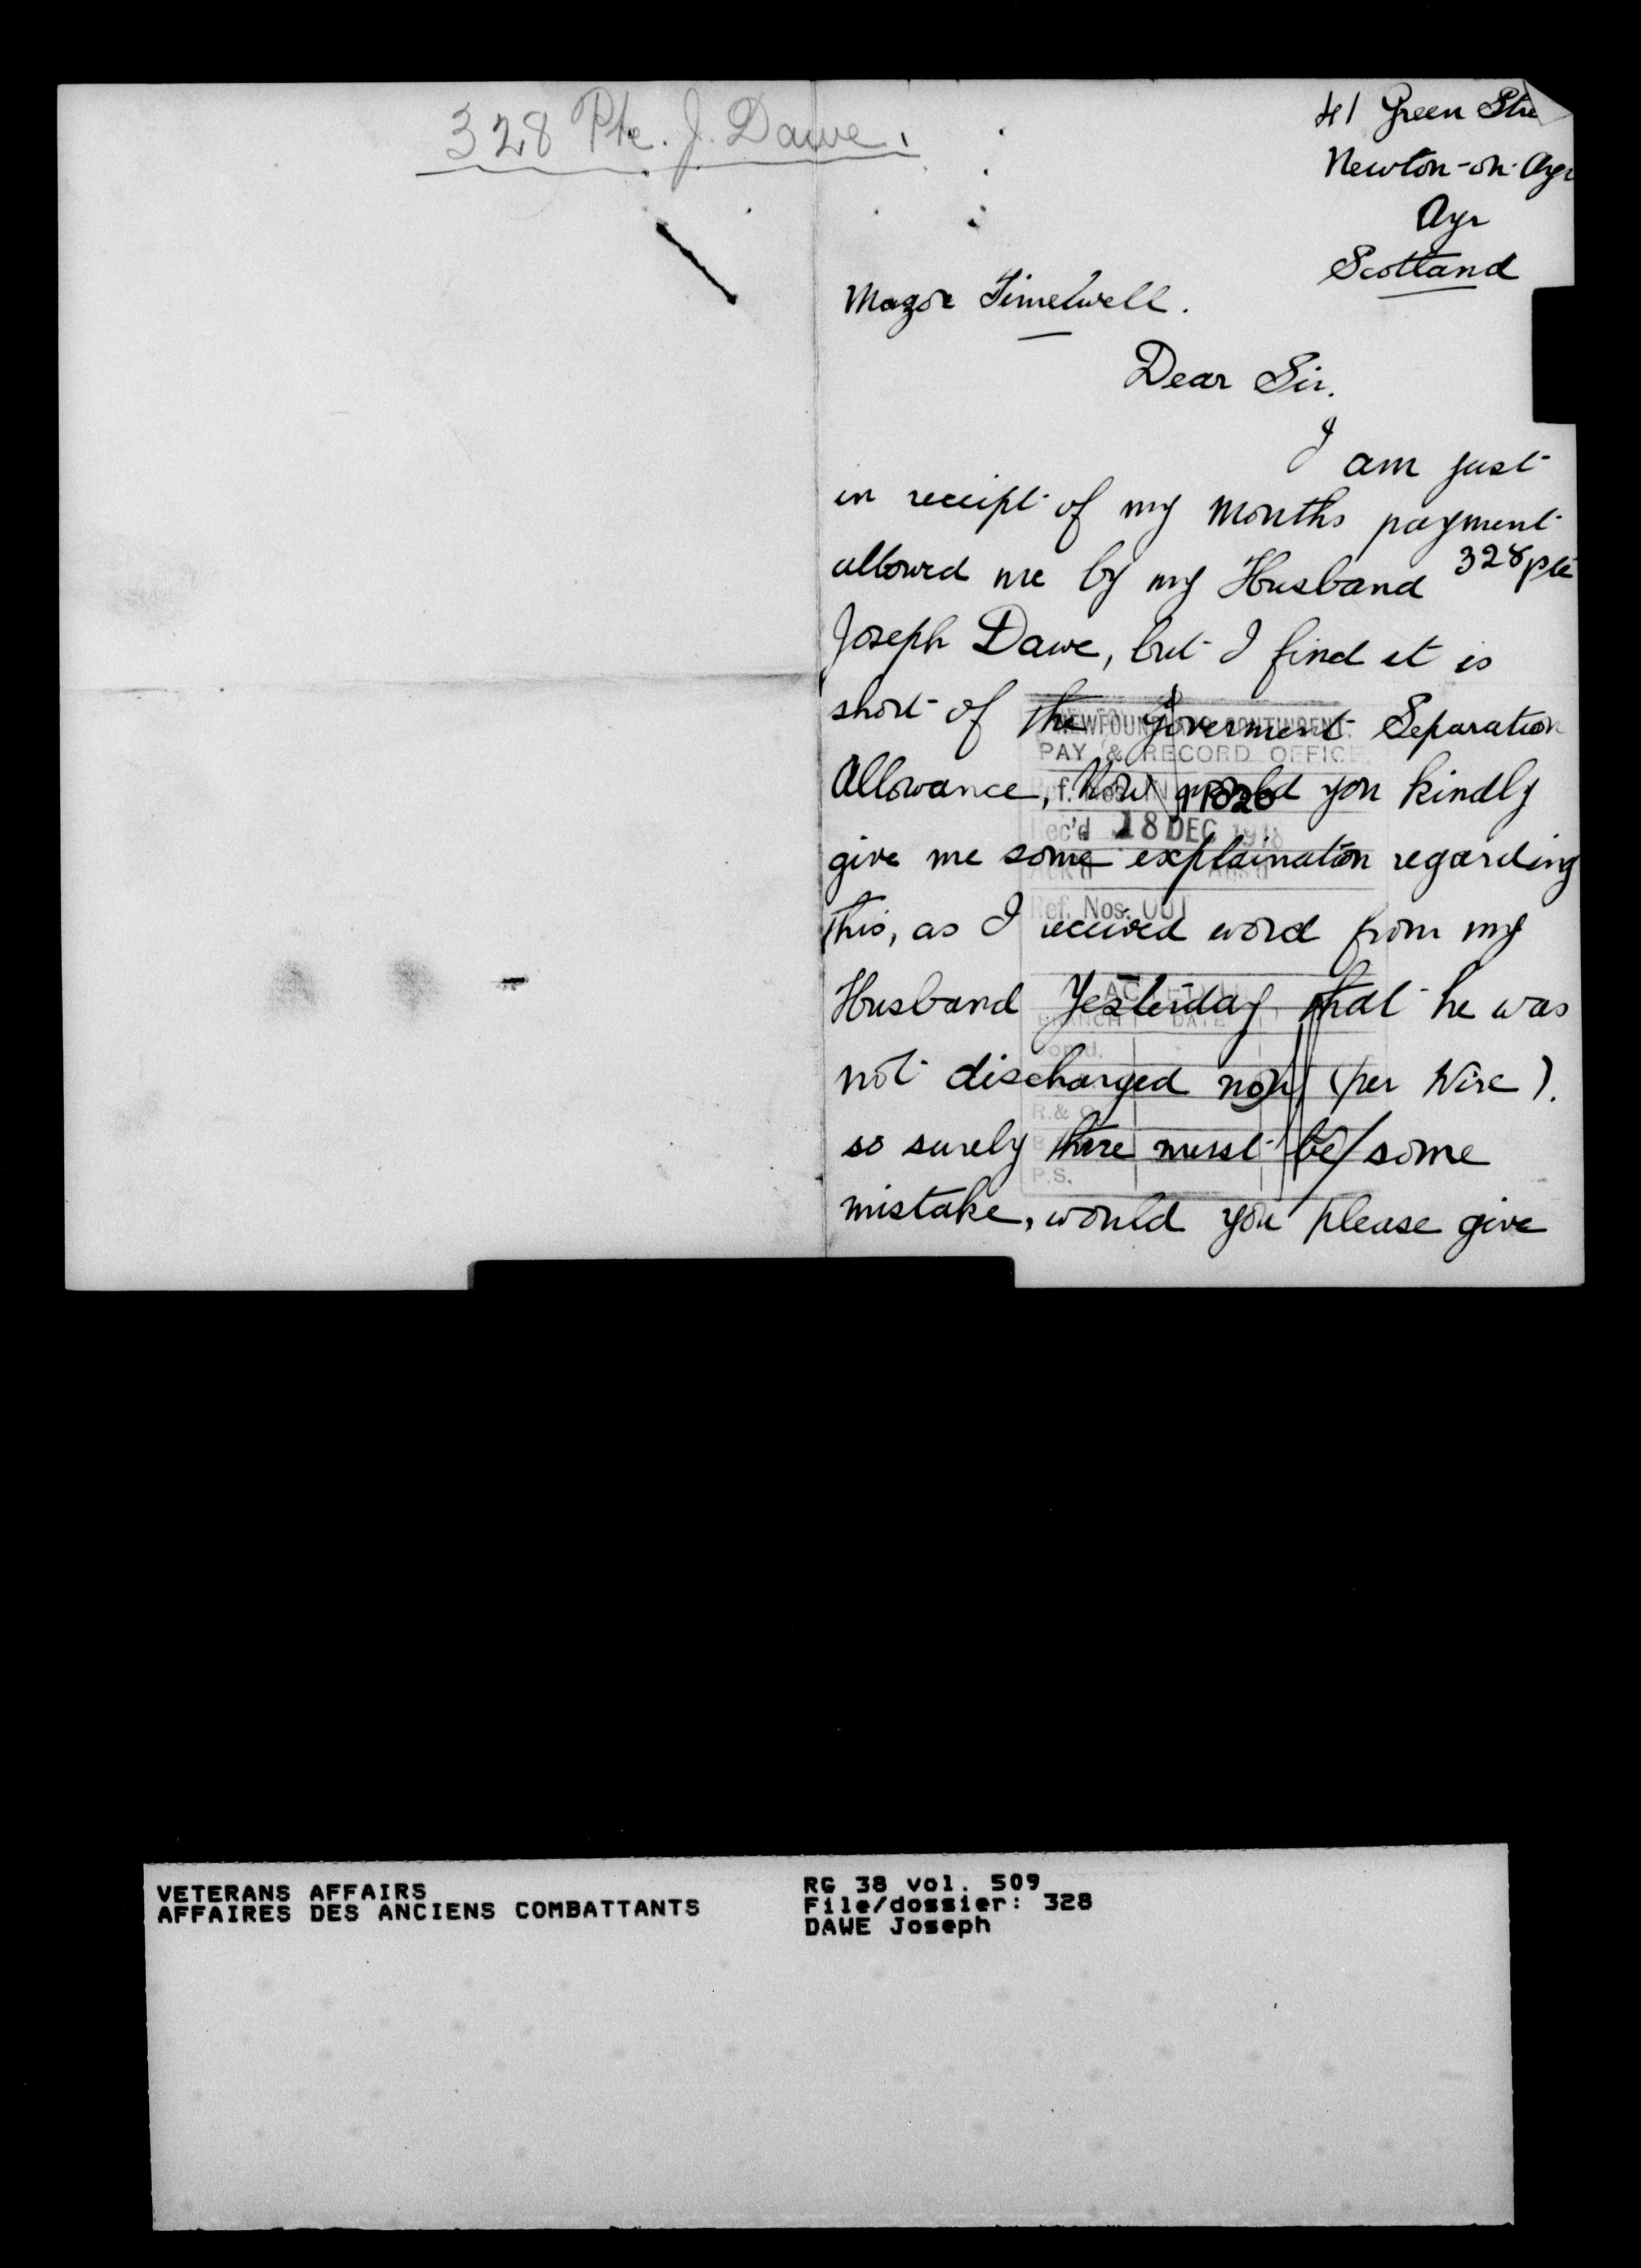 328 Pte. J. Dawe.
41 Green Stre
Newton-on-Ayr
Ayr
Scotland
Magor Timewell.
Dear Sir.
I am just
in receipt of my months payment
allowed me by my Husband 328 pte
Joseph Dawe, but I find it is
short of the Goverment Separation
Allowance, Now would you kindly
give me some explaination regarding
this, as I received word from my
Husband Yesterday that he was
not discharged now (per Wire).
so surely there must be some
mistake, would you please give
NEWFOUNDLAND CONTINGENT
PAY & RECORD OFFICE
Ref. Nos. IN 11826
Rec'd 18 DEC 1918
Ack'd Ans'd
Ref. Nos. OUT
BRANCH DATE
R.&
P.S.
VETERANS AFFAIRS
AFFAIRES DES ANCIENS COMBATTANTS
RG 38 vol. 509
File/dossier: 328
DAWE Joseph